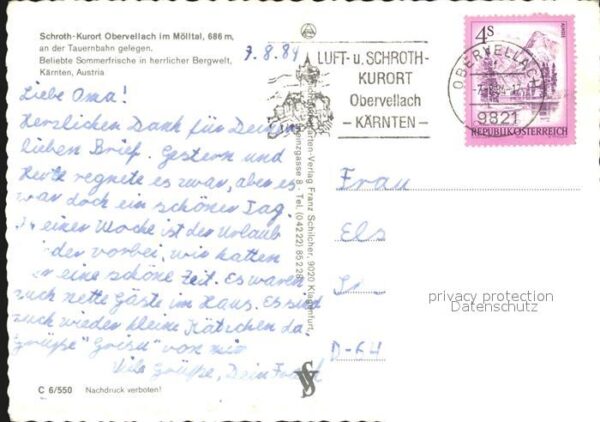 Schroth-Kurort Obervellach im Mölltal, 686 m,
an der Tauernbahn gelegen.
Beliebte Sommerfrische in herrlicher Bergwelt,
Kärnten, Austria
7.8.84
Liebe Oma!
Herzlichen Dank für Deinen
lieben Brief. Gestern und
heute regnete es zwar, aber es
war doch ein schöner Tag.
In einer Woche ist der Urlaub
wieder vorbei, wir hatten
eine schöne Zeit. Es waren
auch nette Gäste im Haus. Es sind
auch wieder kleine Kätzchen da.
Grüße von mir
Viele Grüße, Dein
C 6/550 Nachdruck verboten!
-Verlag Franz Schilcher, 9020 Klagenfurt,
gasse 8 - Tel. (04222) 85228
LUFT- u. SCHROTH-
KURORT
Obervellach
- KÄRNTEN -
OBERVELLACH
9821
4S
REPUBLIK ÖSTERREICH
Frau
Els
D-64
privacy protection
Datenschutz